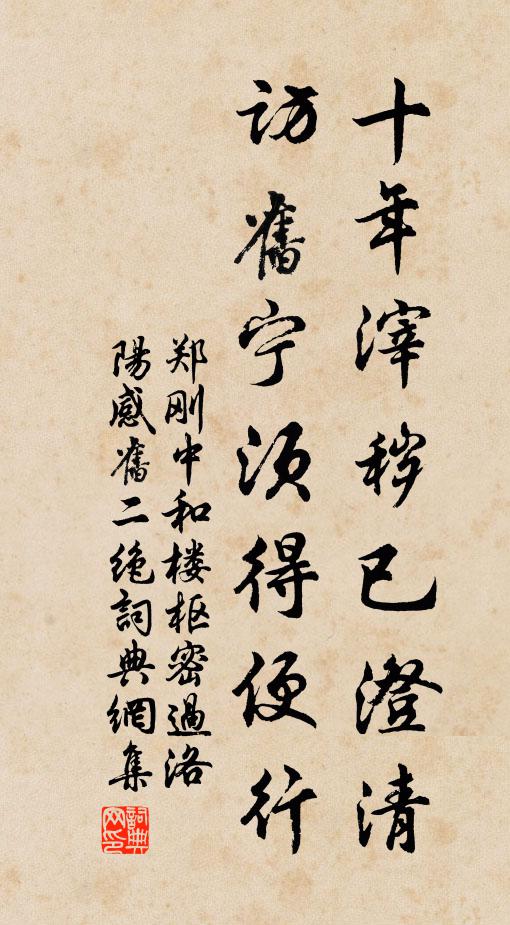 十年滓秽已澄清
访舊宁须得便行
郑刚中和楼枢密過洛
陽感舊二绝詞典網集
詞典网印